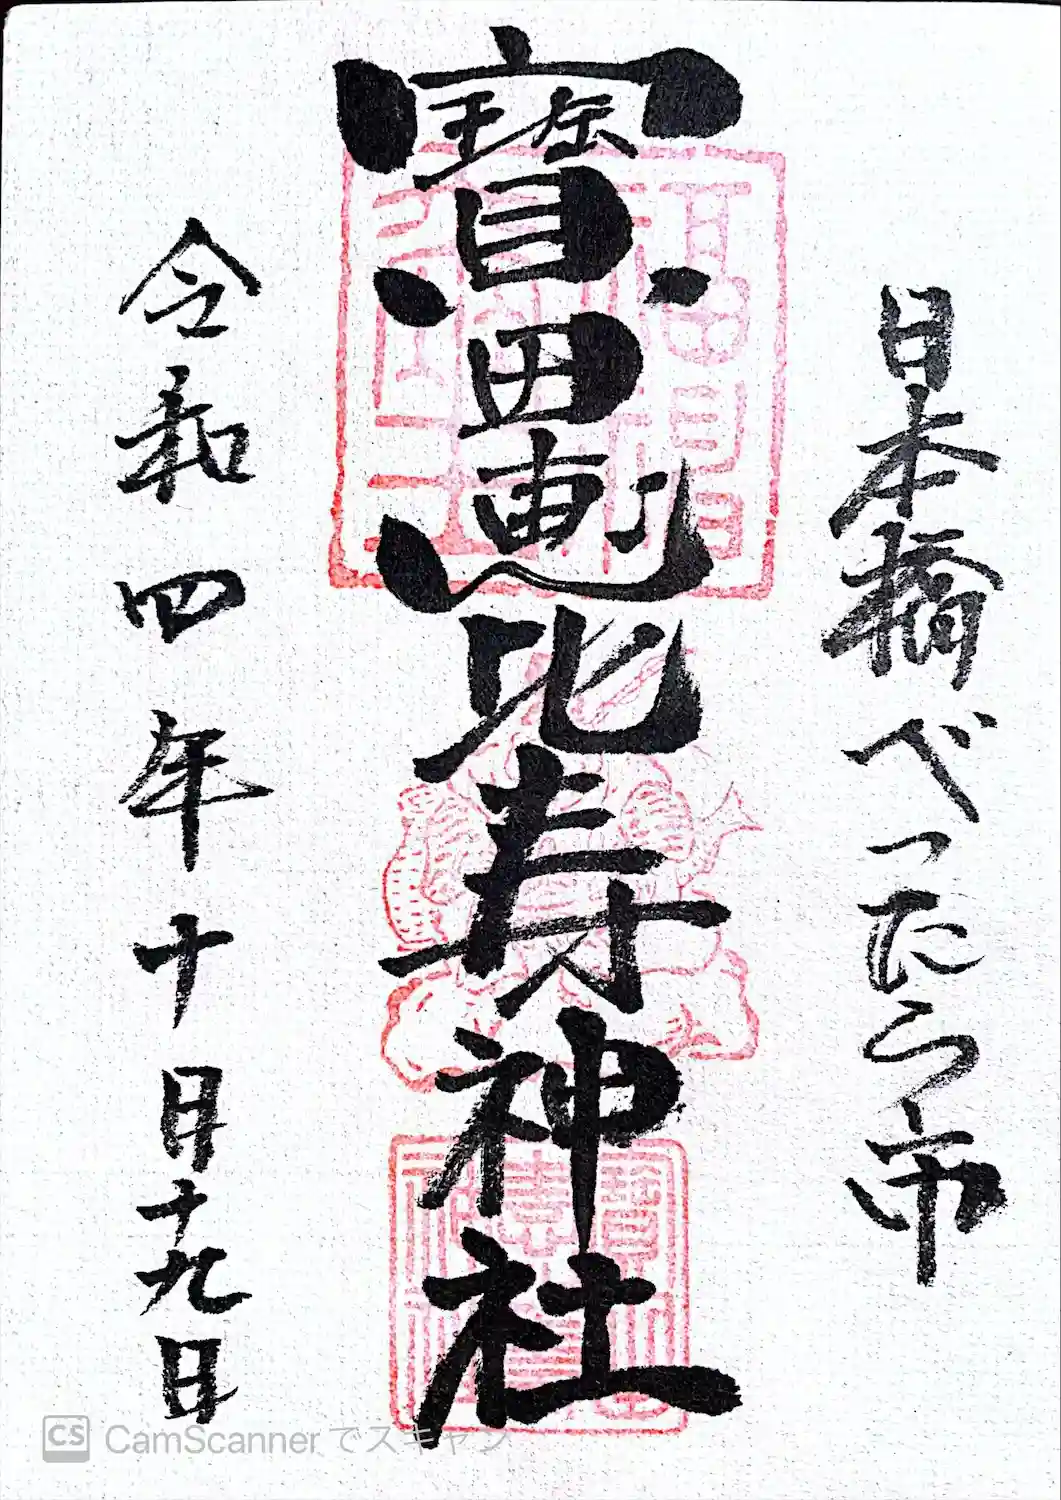 日本橋べったら市
寶田恵比寿神社
令和四年十月十九日
CS CamScannerでスキャン